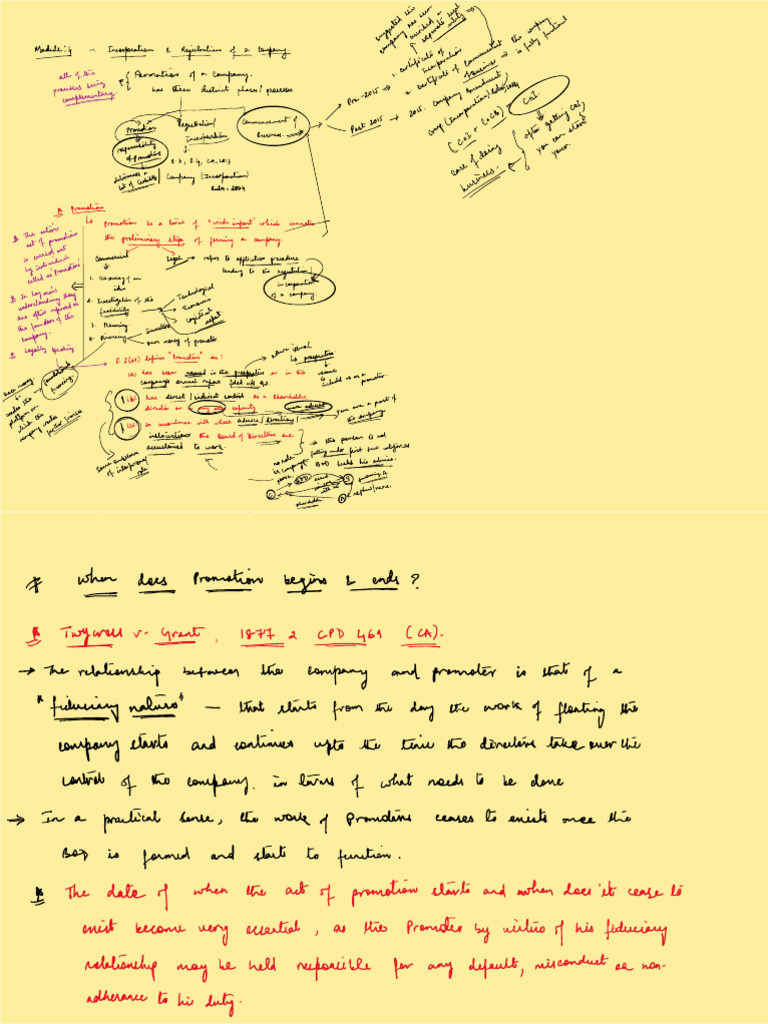 Module: 4 - Incorporation & Registration of a Company
all of the
processes being
complementary
Formation of a Company.
has three distinct phases / processes
Promotion
Registration /
Incorporation
Commencement of
business.
responsibility
of Promoters
S.3, S.4, CA, 2013
Company (Incorporation)
Rules - 2014
Pre-2015 → Certificate of
Incorporation
suggested the
company has been
separate legal
entity
Certificate of Commencement
of Business → the company
is fully functional
Post 2015 → 2015. Company Amendment
Comp (Incorporation)
(COI + COCB)
COI.
ease of doing
business.
after getting COI,
you can start
your
Promotion
↳ Promotion is a term of 'wide import' which connotes
the preliminary steps of forming a company
The entire
act of promotion
is carried out
by individuals
called as 'promoters'
In lay man's
understanding they
are often referred as
the founders of the
company.
Legally speaking.
Commercial
Legal → refers to application procedure
leading to the registration /
incorporation
of a company
1. Discovery of an
idea
2. Investigation of the
feasibility
Technological
Economic
Logistical
3. Planning
4. Financing
Investors
own money of promoter
S. 2(69) defines "Promoter" as:
(a) has been named in the prospectus or in the
company's annual report filed u/s 92.
↳ prospectus
name
included as a
promoter.
(b) has direct / indirect control as a shareholder
director or in any other capacity
you are a part of
the company
(c) in accordance with whose advice / directions /
instructions the Board of Directors are
accustomed to work.
the person is not
falling under first two
BOD seeks his advice.
When does Promotion begins & ends?
Twycross v. Grant, 1877 2 CPD 469 (CA).
→ The relationship between the company and promoter is that of a
"fiduciary nature" - that starts from the day the work of floating the
company starts and continues upto the time the directors take over the
control of the company. in terms of what needs to be done
→ In a practical sense, the work of Promoters ceases to exists once the
BOD is formed and starts to function.
The date of when the act of promotion starts and when does it cease to
exist become very essential, as the Promoter by virtue of his fiduciary
relationship may be held responsible for any default, misconduct or non-
adherance to his duty.